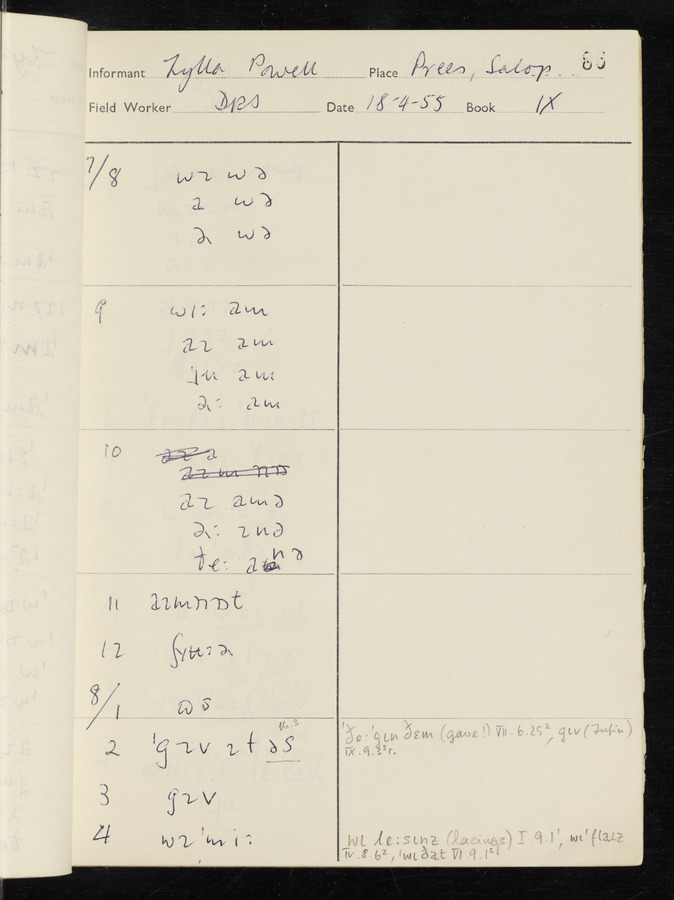 Informant Zylla Powell Place Prees, Salop. 86
Field Worker DRS Date 18-4-55 Book IX
7/8 wɪ wə
ɪ wə
ə wə
9 wi: am
aɪ am
am
ə: am
10
aɪ amə
ðe:
11 aɪmnɒt
12 ʃuə
8/1 ʊs
2 ˈgɪv ɪt əs
3 gɪv
4 wɪˈmi:
ˈðe: ˈgɪn ðɛm (gave!) VII.6.25², gɪv (Infin)
IX.9.3³r.
wɪ le:sɪnz (lacings) I.9.1ˈ, wɪˈflaɪz
IV.8.6², ˈwɪ ðat VI 9.1²ˈ